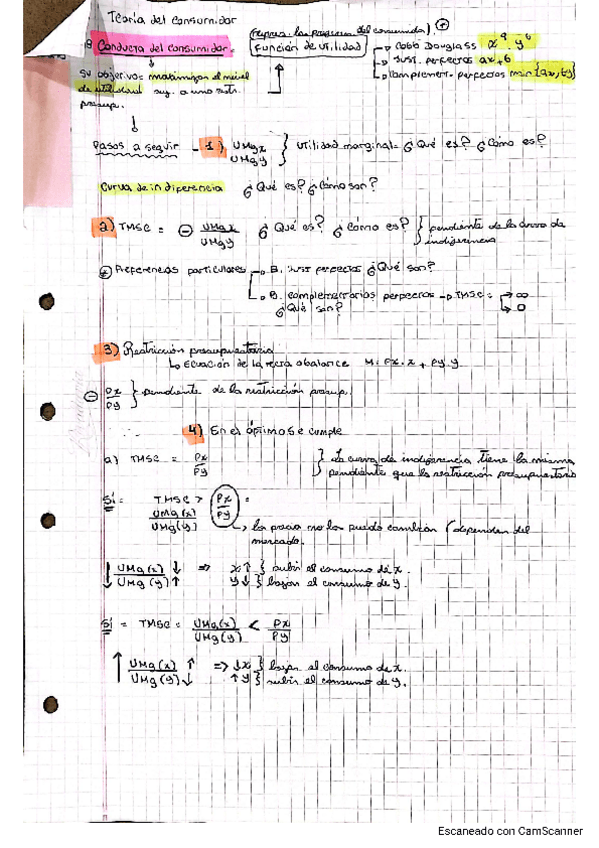 Teoría del consumidor
Conducta del consumidor.
(represa. las preferencias del consumidor) +
función de utilidad
Cobb Douglass x^a y^b
Sust. perfectos ax+b
Complement. perfectos min{ax,by}
su objetivo: maximizar el nivel
de utilidad suj. a una restr.
presup.
Pasos a seguir - 1) UMgx
UMgy
Utilidad marginal= ¿Qué es? ¿Cómo es?
Curva de indiferencia ¿Qué es? ¿Cómo son?
2) TMSC = - UMgx / UMgy ¿Qué es? ¿Cómo es? } pendiente de la curva de
indiferencia
Preferencias particulares → B. Sust perfectos ¿Qué son?
B. complementarios perfectos → TMSC = → ∞
¿Qué son? → 0
3) Restricción presupuestaria
↳ Ecuación de la recta o balance M = Px.x + Py.y
- Px / Py } pendiente de la restricción presup.
4) En el óptimo se cumple
a) TMSC = Px / Py } La curva de indiferencia tiene la misma
pendiente que la restricción presupuestaria
Si = TMSC > Px / Py =
UMg(x) / UMg(y)
los precios no los puedo cambiar (dependen del
mercado.
↓ UMg(x) ↓ / UMg(y) ↑ ⇒ x↑ } subir el consumo de x.
y↓ } bajar el consumo de y.
Si = TMSC = UMg(x) / UMg(y) < Px / Py
↑ UMg(x) ↑ / UMg(y) ↓ ⇒ ↓x } bajar el consumo de x.
↑y } subir el consumo de y.
Escaneado con CamScanner